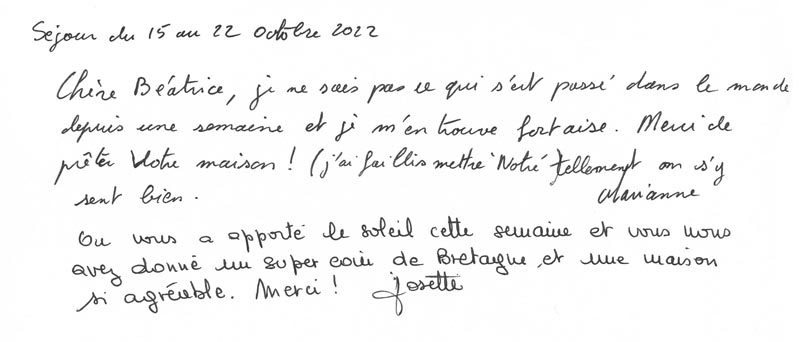 Séjour du 15 au 22 Octobre 2022
Chère Béatrice, je ne sais pas ce qui s'est passé dans le monde
depuis une semaine et je m'en trouve fort aise. Merci de
prêter Votre maison ! (j'ai faillis mettre "Notre" tellement on s'y
sent bien.
Marianne
On vous a apporté le soleil cette semaine et vous nous
avez donné un super coin de Bretagne et une maison
si agréable. Merci ! Josette